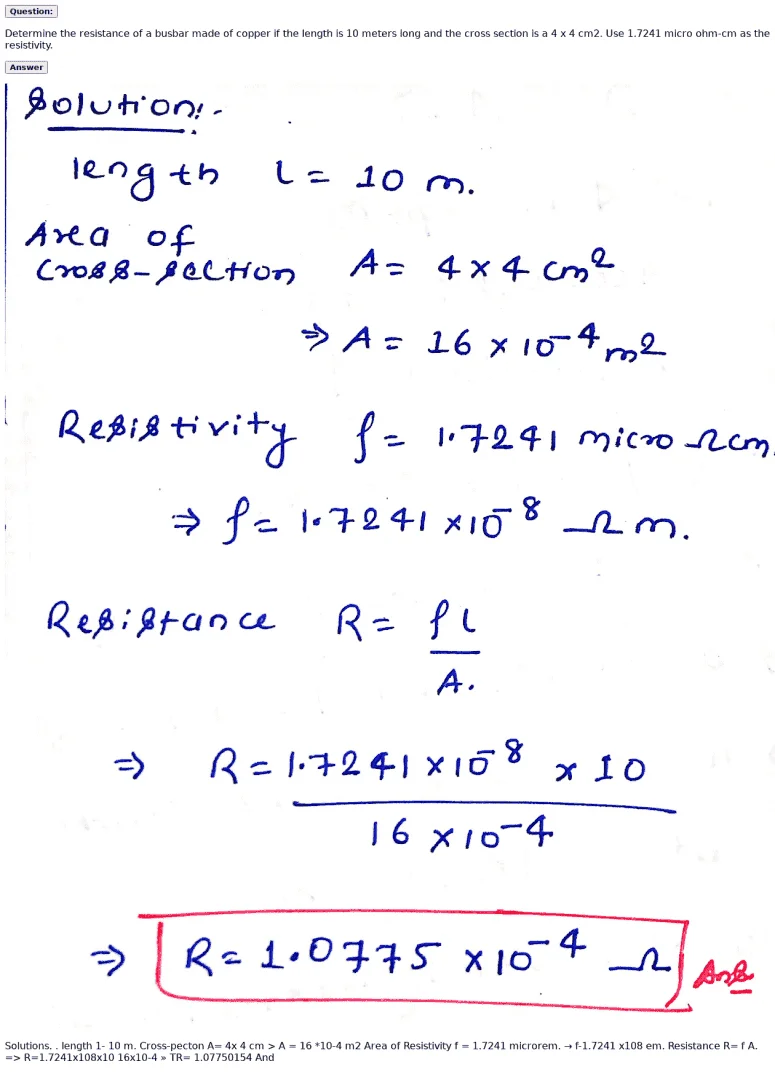 Question:
Determine the resistance of a busbar made of copper if the length is 10 meters long and the cross section is a 4 x 4 cm2. Use 1.7241 micro ohm-cm as the
resistivity.
Answer
Solution:-
length l = 10 m.
Area of
Cross-section A = 4 × 4 cm²
⇒ A = 16 × 10⁻⁴ m²
Resistivity ρ = 1.7241 micro Ωcm.
⇒ ρ = 1.7241 × 10⁻⁸ Ω m.
Resistance R = ρ l
A.
⇒ R = 1.7241 × 10⁻⁸ × 10
16 × 10⁻⁴
⇒ R = 1.0775 × 10⁻⁴ Ω Ans
Solutions. . length 1- 10 m. Cross-pecton A= 4x 4 cm > A = 16 *10-4 m2 Area of Resistivity f = 1.7241 microrem. → f-1.7241 x108 em. Resistance R= f A.
=> R=1.7241x108x10 16x10-4 » TR= 1.07750154 And